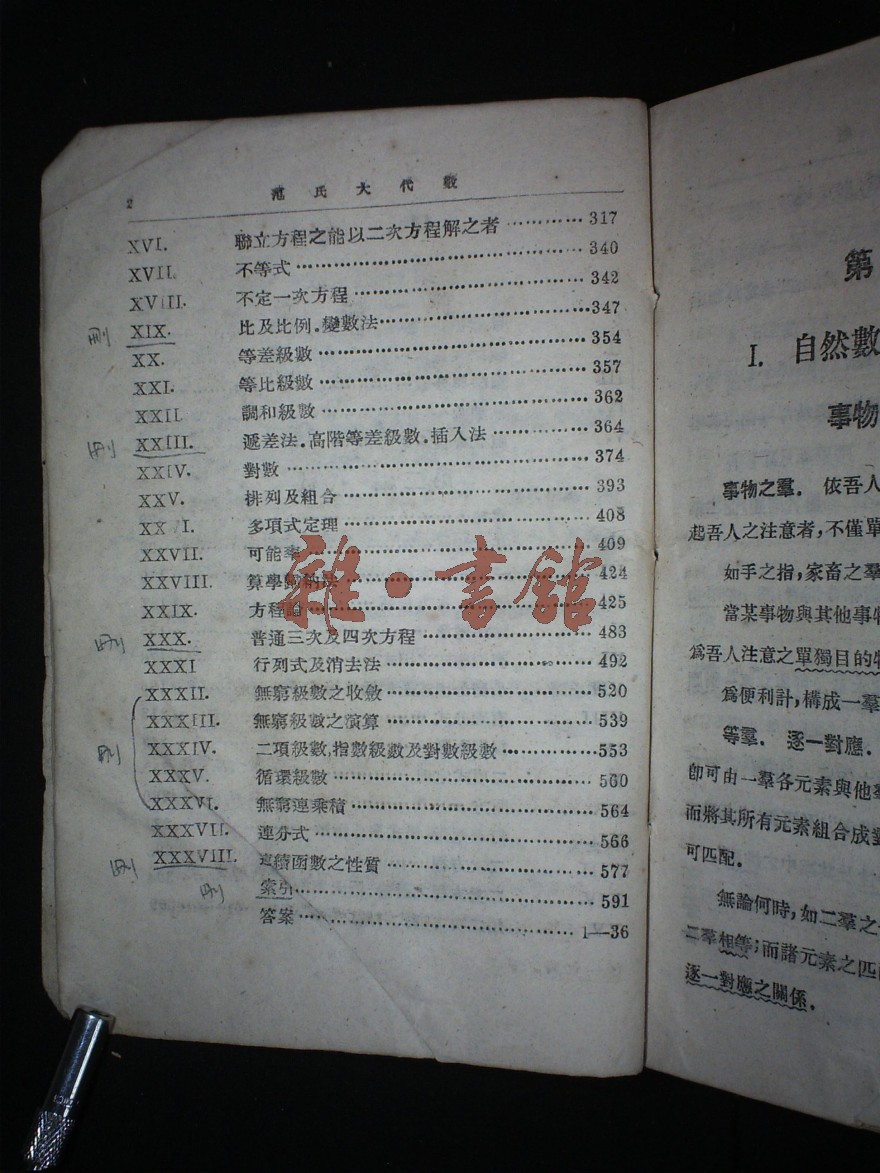 2 范氏大代數
XVI. 聯立方程之能以二次方程解之者 ············ 317
XVII. 不等式 ············ 340
XVIII. 不定一次方程 ············ 342
刪 XIX. 比及比例.變數法 ············ 347
XX. 等差級數 ············ 354
XXI. 等比級數 ············ 357
XXII 調和級數 ············ 362
刪 XXIII. 遞差法.高階等差級數.插入法 ············ 364
XXIV. 對數 ············ 374
XXV. 排列及組合 ············ 393
XXVI. 多項式定理 ············ 408
XXVII. 可能率 ············ 409
XXVIII. 算學歸納法 ············ 424
XXIX. 方程論 ············ 425
刪 XXX. 普通三次及四次方程 ············ 483
XXXI 行列式及消去法 ············ 492
XXXII. 無窮級數之收斂 ············ 520
XXXIII. 無窮級數之演算 ············ 539
刪 XXXIV. 二項級數,指數級數及對數級數 ············ 553
XXXV. 循環級數 ············ 560
XXXVI. 無窮連乘積 ············ 564
XXXVII. 連分式 ············ 566
刪 XXXVIII. 連續函數之性質 ············ 577
刪 索引 ············ 591
答案 ············ 1—36
雜·書館
第
I. 自然數
事物
事物之羣. 依吾人
起吾人之注意者,不僅單
如手之指,家畜之羣
當某事物與其他事物
爲吾人注意之單獨目的物
爲便利計,構成一羣
等羣. 逐一對應.
卽可由一羣各元素與他羣
而將其所有元素組合成對
可匹配.
無論何時,如二羣之
二羣相等;而諸元素之匹配
逐一對應之關係.